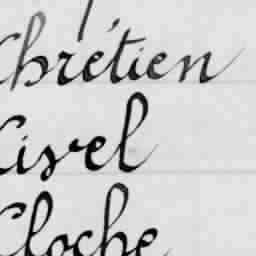 Chrétien
Cisrel
Cloche